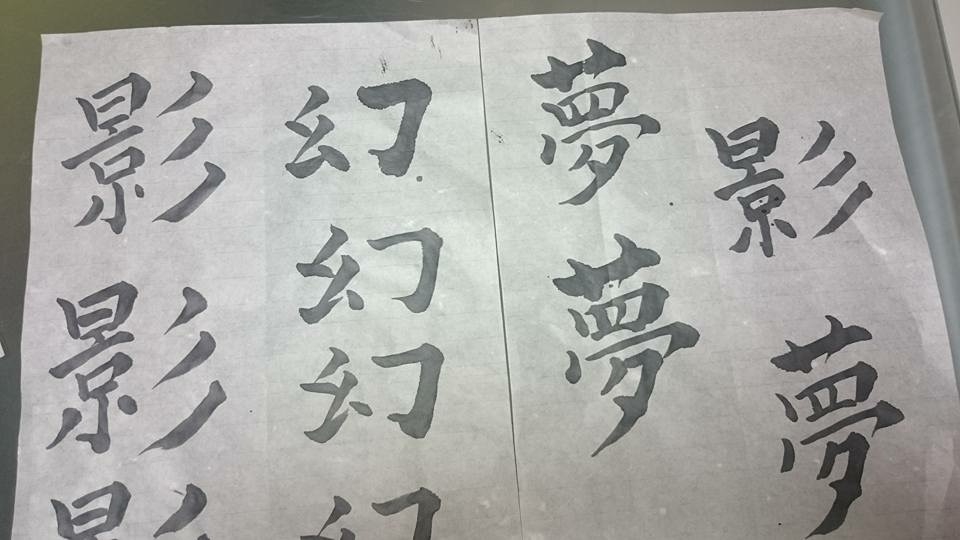 影夢
夢夢
幻幻幻幻
影影影